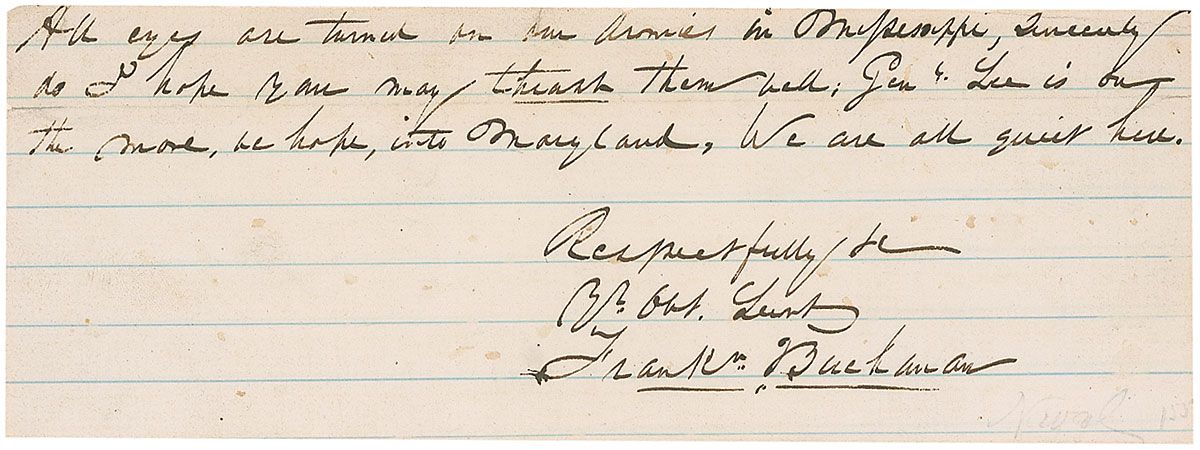 All eyes are turned on our Armies in Mississippi, Sincerely
do I hope you may thrash them well; Genl. Lee is on
the move, we hope, into Maryland. We are all quiet here.
Respectfully &c
Yr. Obt. Servt
Frankn. Buchanan
Naval